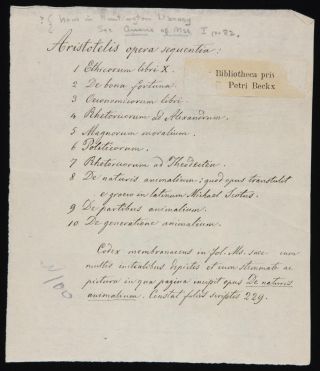 Now in Huntington Library
See I no 82.
Aristotelis opera sequentia:
Bibliotheca pris
Petri Beckx
1 Ethicorum libri X.
2 De bona fortuna.
3 Oeconomicorum libri.
4 Rhetoricorum ad Alexandrum.
5 Magnorum moralium.
6 Politicorum.
7 Rhetoricorum ad Theodecten.
8 De naturis animalium: quod opus transtulit
e graeco in latinum Michael Scotus.
9 De partibus animalium.
10 De generatione animalium.
Codex membranaceus in fol. Ms. saec. cum
multis initialibus depictis et cum stemmate ac
pictura in qua pagina incipit opus De naturis
animalium. Constat foliis scriptis 229.